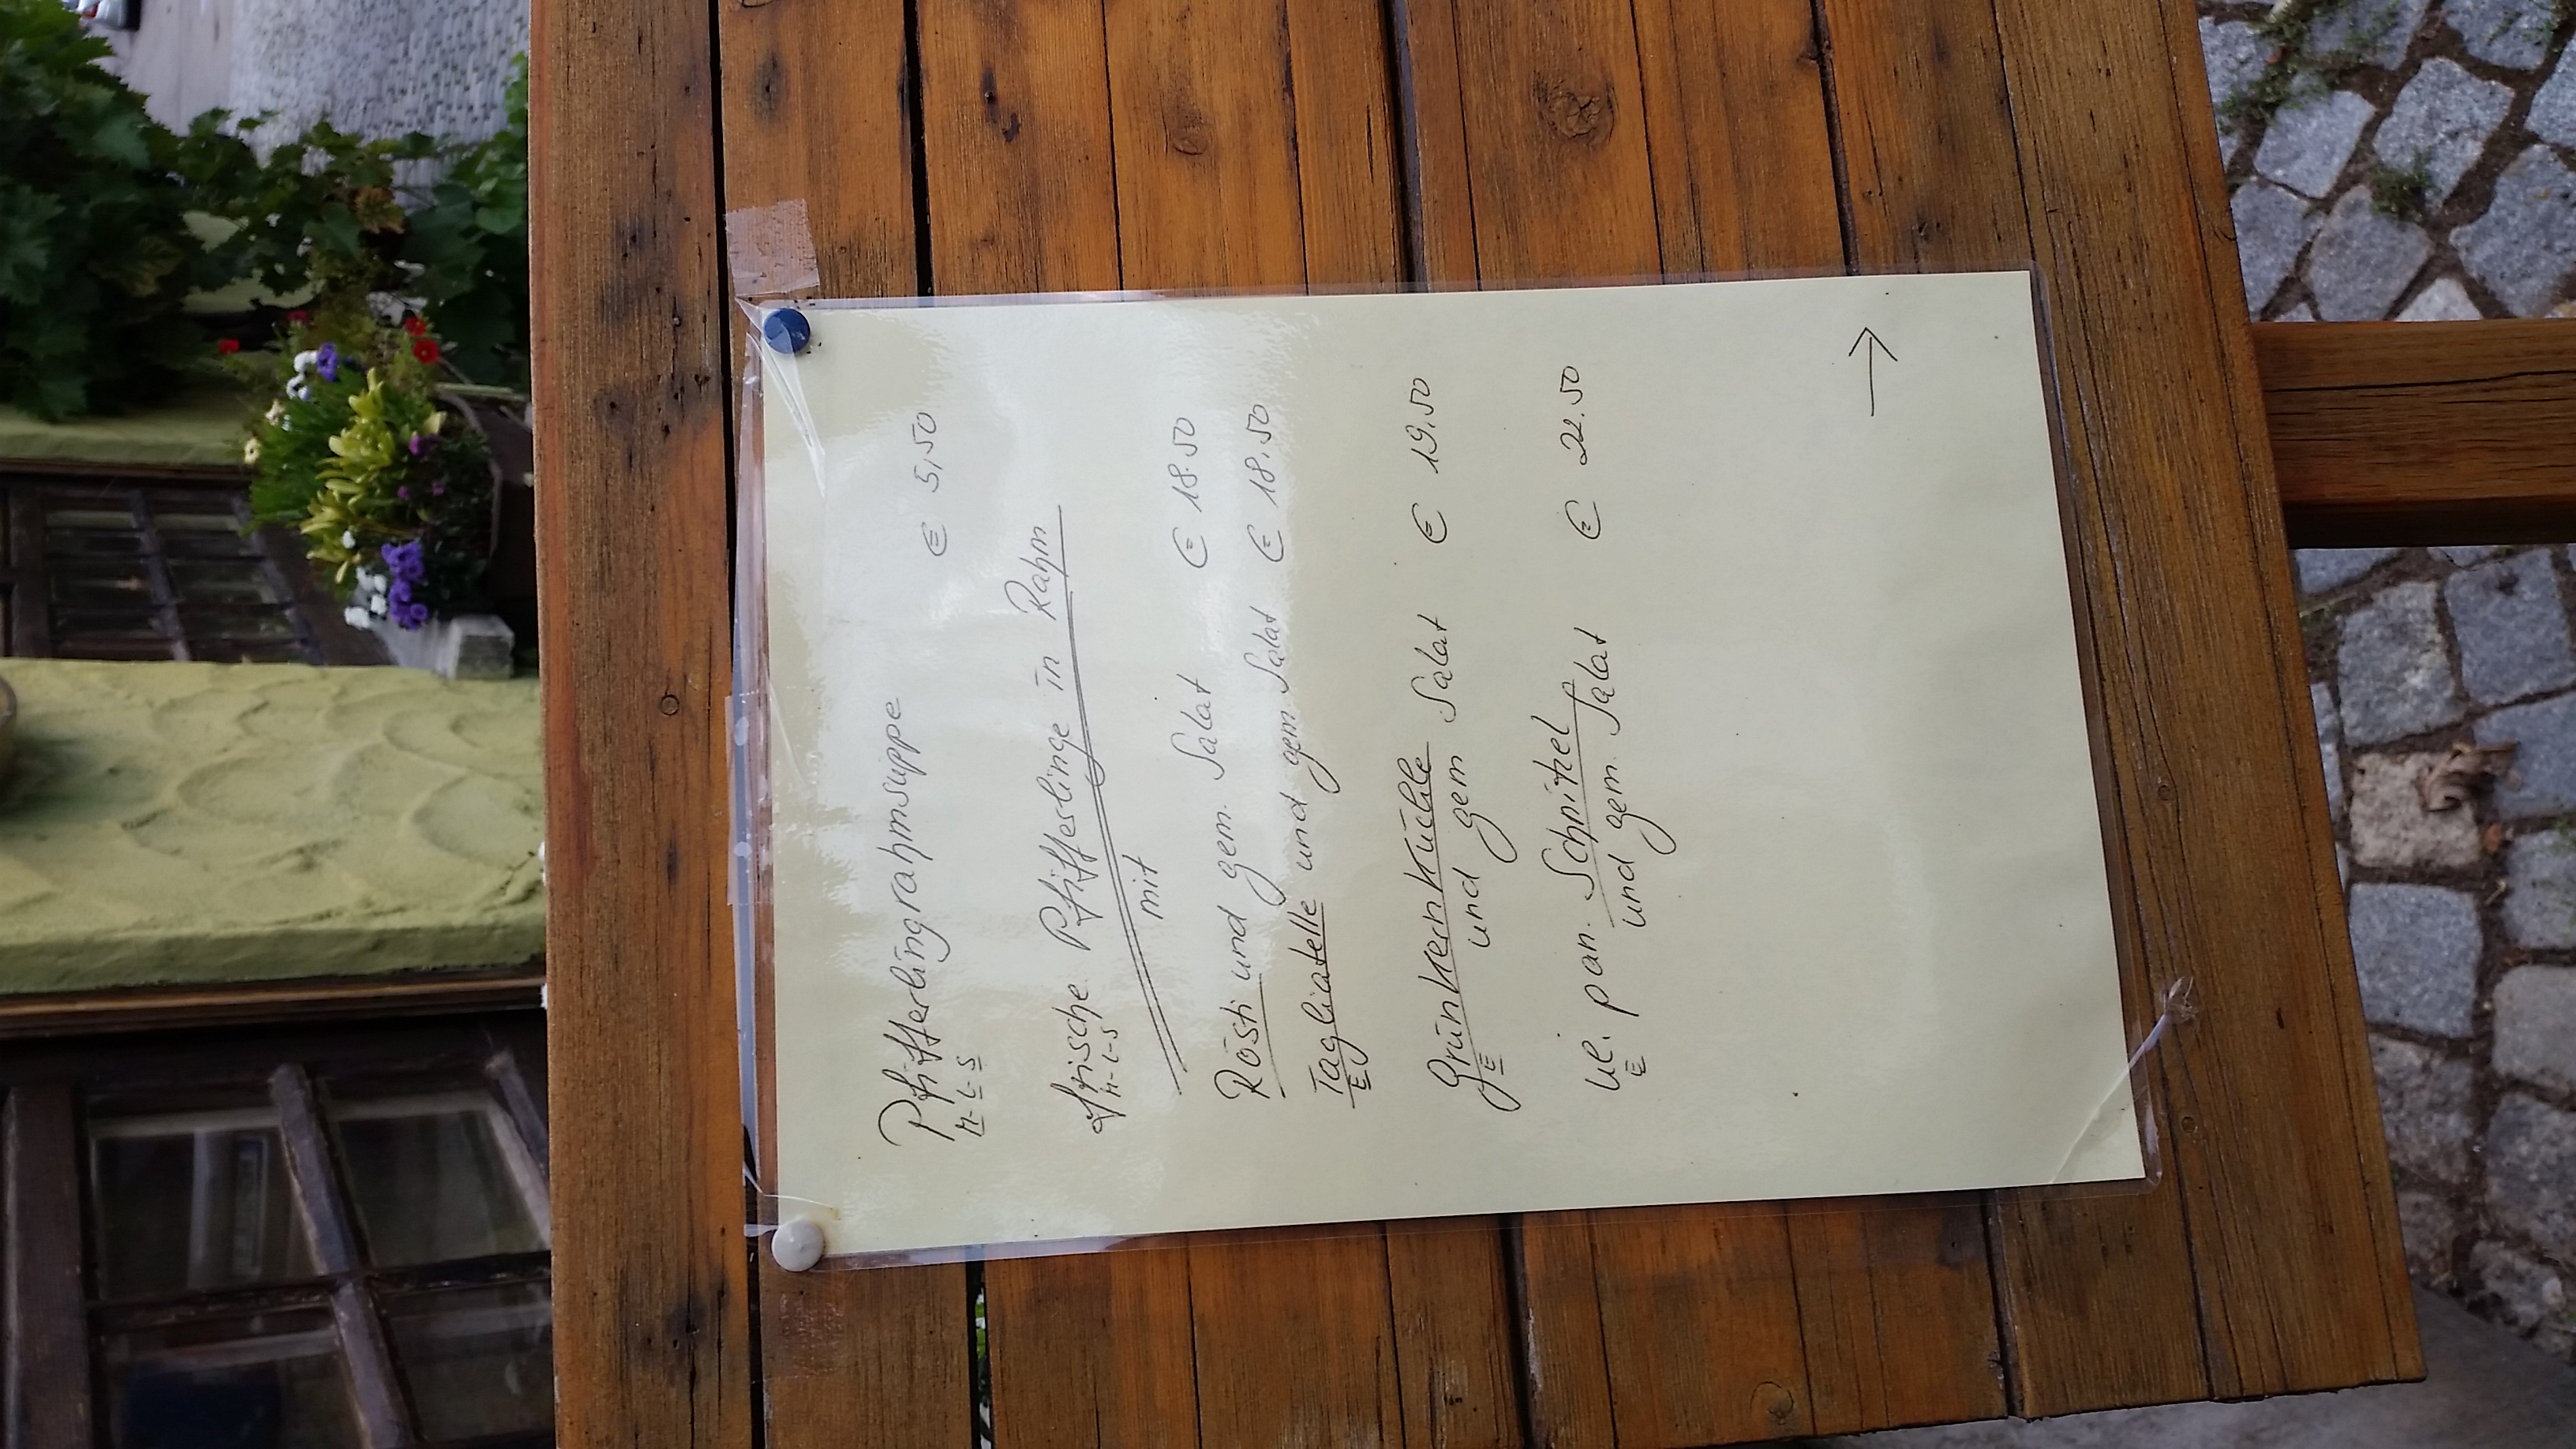 Pfifferlingrahmsuppe
M-L-S € 5,50
frische Pfifferlinge in Rahm
M-L-S
mit
Rösti und gem. Salat € 18.50
Tagliatelle und gem Salat € 18.50
E
Grünkernküchle
E und gem Salat € 19.50
pan. Schnitzel
E und gem. Salat € 22.50
→